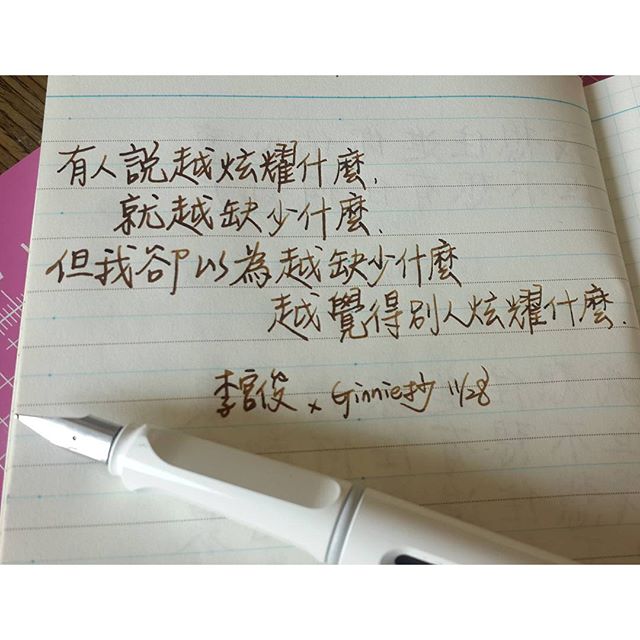 有人說越炫耀什麼,
就越缺少什麼,
但我卻以為越缺少什麼
越覺得別人炫耀什麼.
李宮俊 x Ginnie抄 11/28